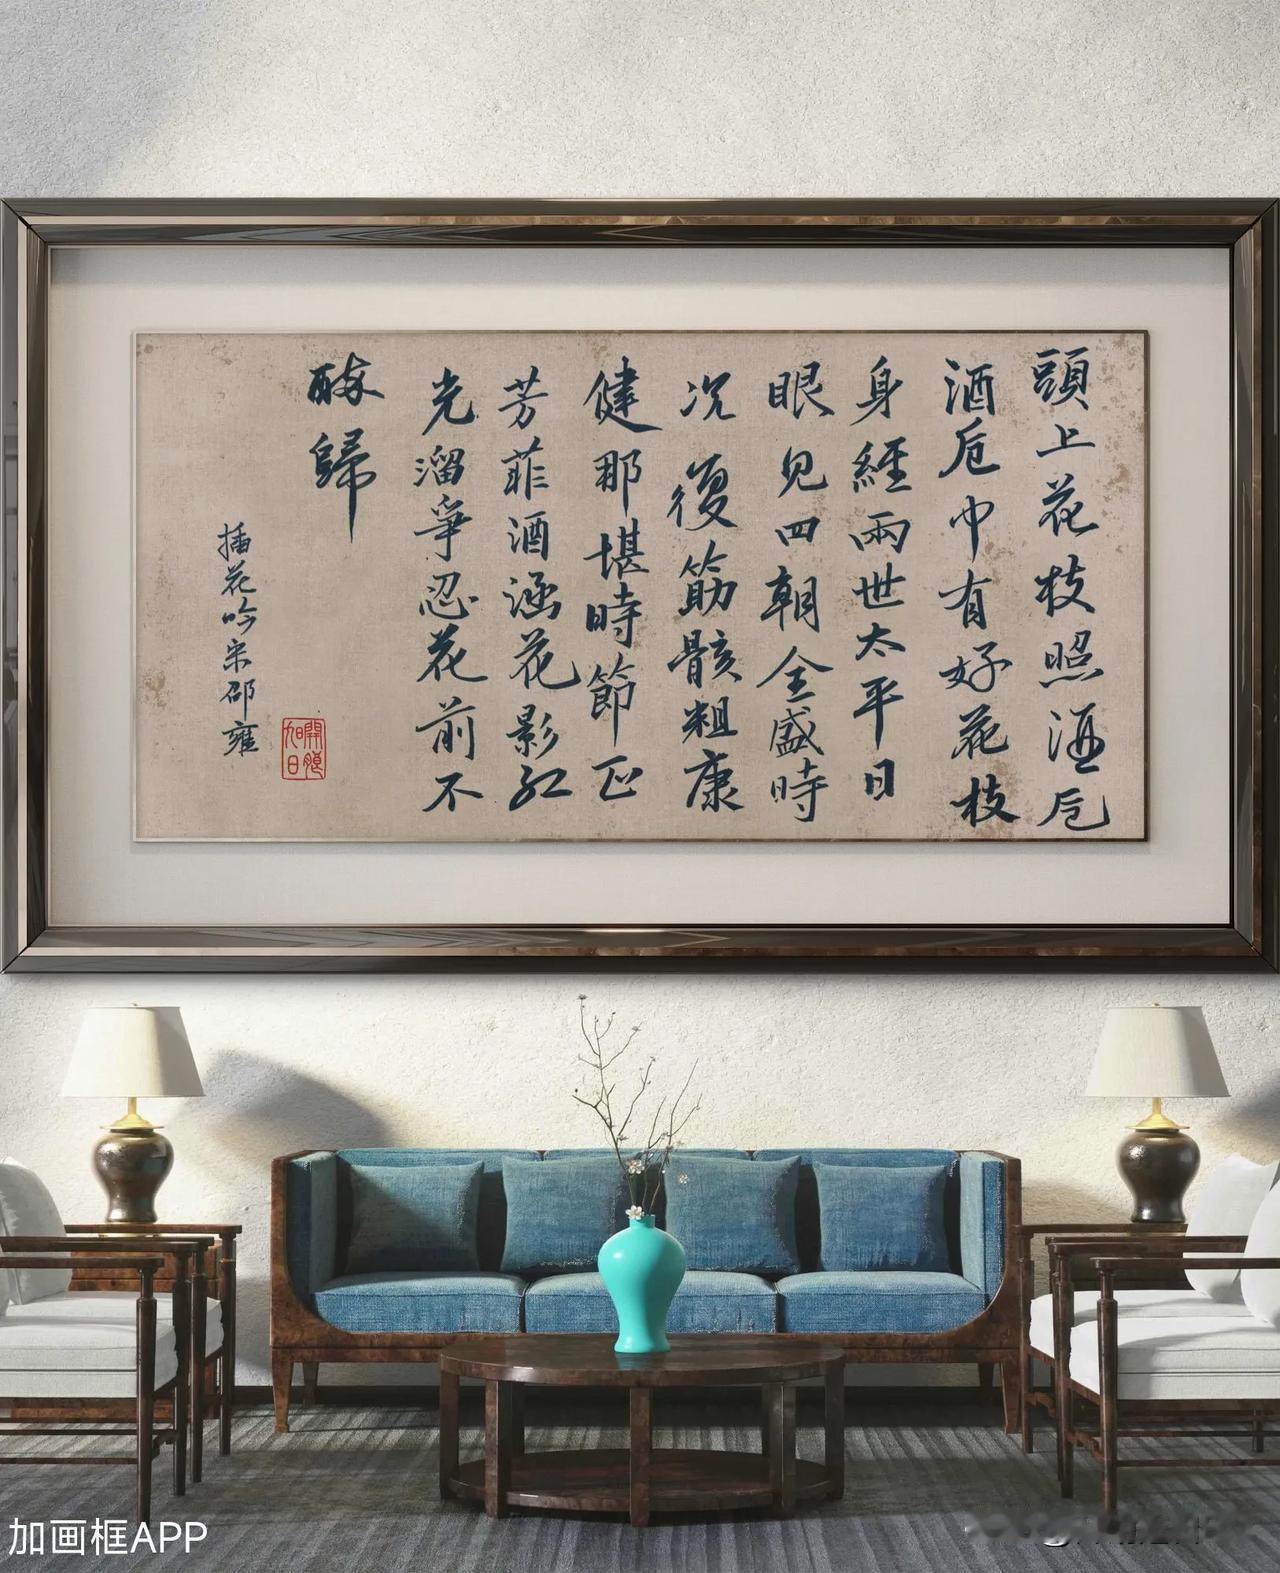 頭上花枝照酒卮
酒卮中有好花枝
身經兩世太平日
眼見四朝全盛時
況復筋骸粗康
健那堪時節正
芳菲酒涵花影紅
光溜爭忍花前不
醉歸
插花吟宋邵雍
加画框APP